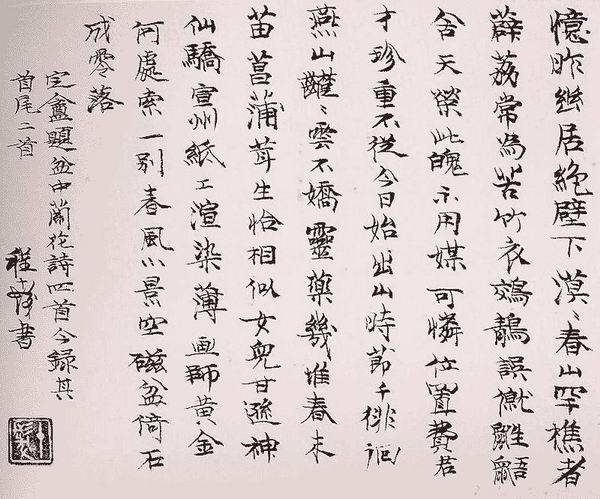 憶昨幽居絕壁下漠〻春山罕樵者
薜荔常為苦竹衣鵁鶄誤僦鼪鼯
舍天榮此魄不用媒可憐位置費君
才珍重不從今日始出山時節千徘徊
燕山齾〻雲不嬌靈藥幾堆春未
苗菖蒲茸生恰相似女兒甘遜神
仙驕宣州紙工渲染薄畫師黃金
何處索一別春風小景空磁盆倚石
成零落
定盦題盆中蘭花詩四首今錄其
首尾二首
程十髮書